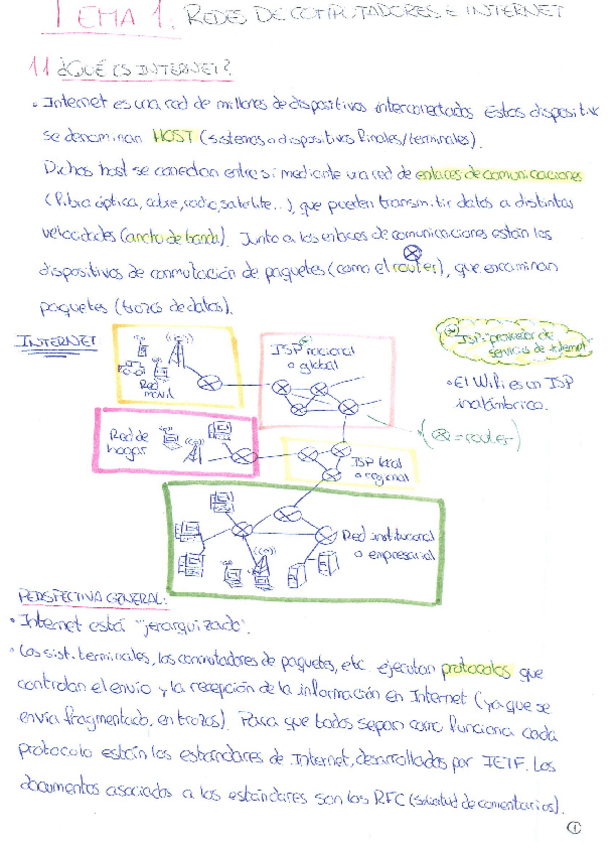 TEMA 1: REDES DE COMPUTADORES E INTERNET
1.1 ¿QUÉ ES INTERNET?
• Internet es una red de millones de dispositivos interconectados. Estos dispositivos
se denominan HOST (sistemas o dispositivos finales/terminales).
Dichos host se conectan entre si mediante una red de enlaces de comunicaciones
(fibra óptica, cobre, radio, satélite...), que pueden transmitir datos a distintas
velocidades (ancho de banda). Junto a los enlaces de comunicaciones están los
dispositivos de conmutación de paquetes (como el router), que encaminan
paquetes (trozos de datos).
INTERNET
Red móvil
ISP nacional
o global
ISP: proveedor de
servicios de internet
• El WiFi es un ISP
inalámbrico.
(⊗ = router)
Red de
hogar
ISP local
o regional
Red institucional
o empresarial
PERSPECTIVA GENERAL:
• Internet está "jerarquizado".
• Los sist. terminales, los conmutadores de paquetes, etc. ejecutan protocolos que
controlan el envío y la recepción de la información en Internet (ya que se
envía fragmentado, en trozos). Para que todos sepan como funciona cada
protocolo están los estándares de Internet, desarrollados por IETF. Los
documentos asociados a los estándares son los RFC (solicitud de comentarios).
1